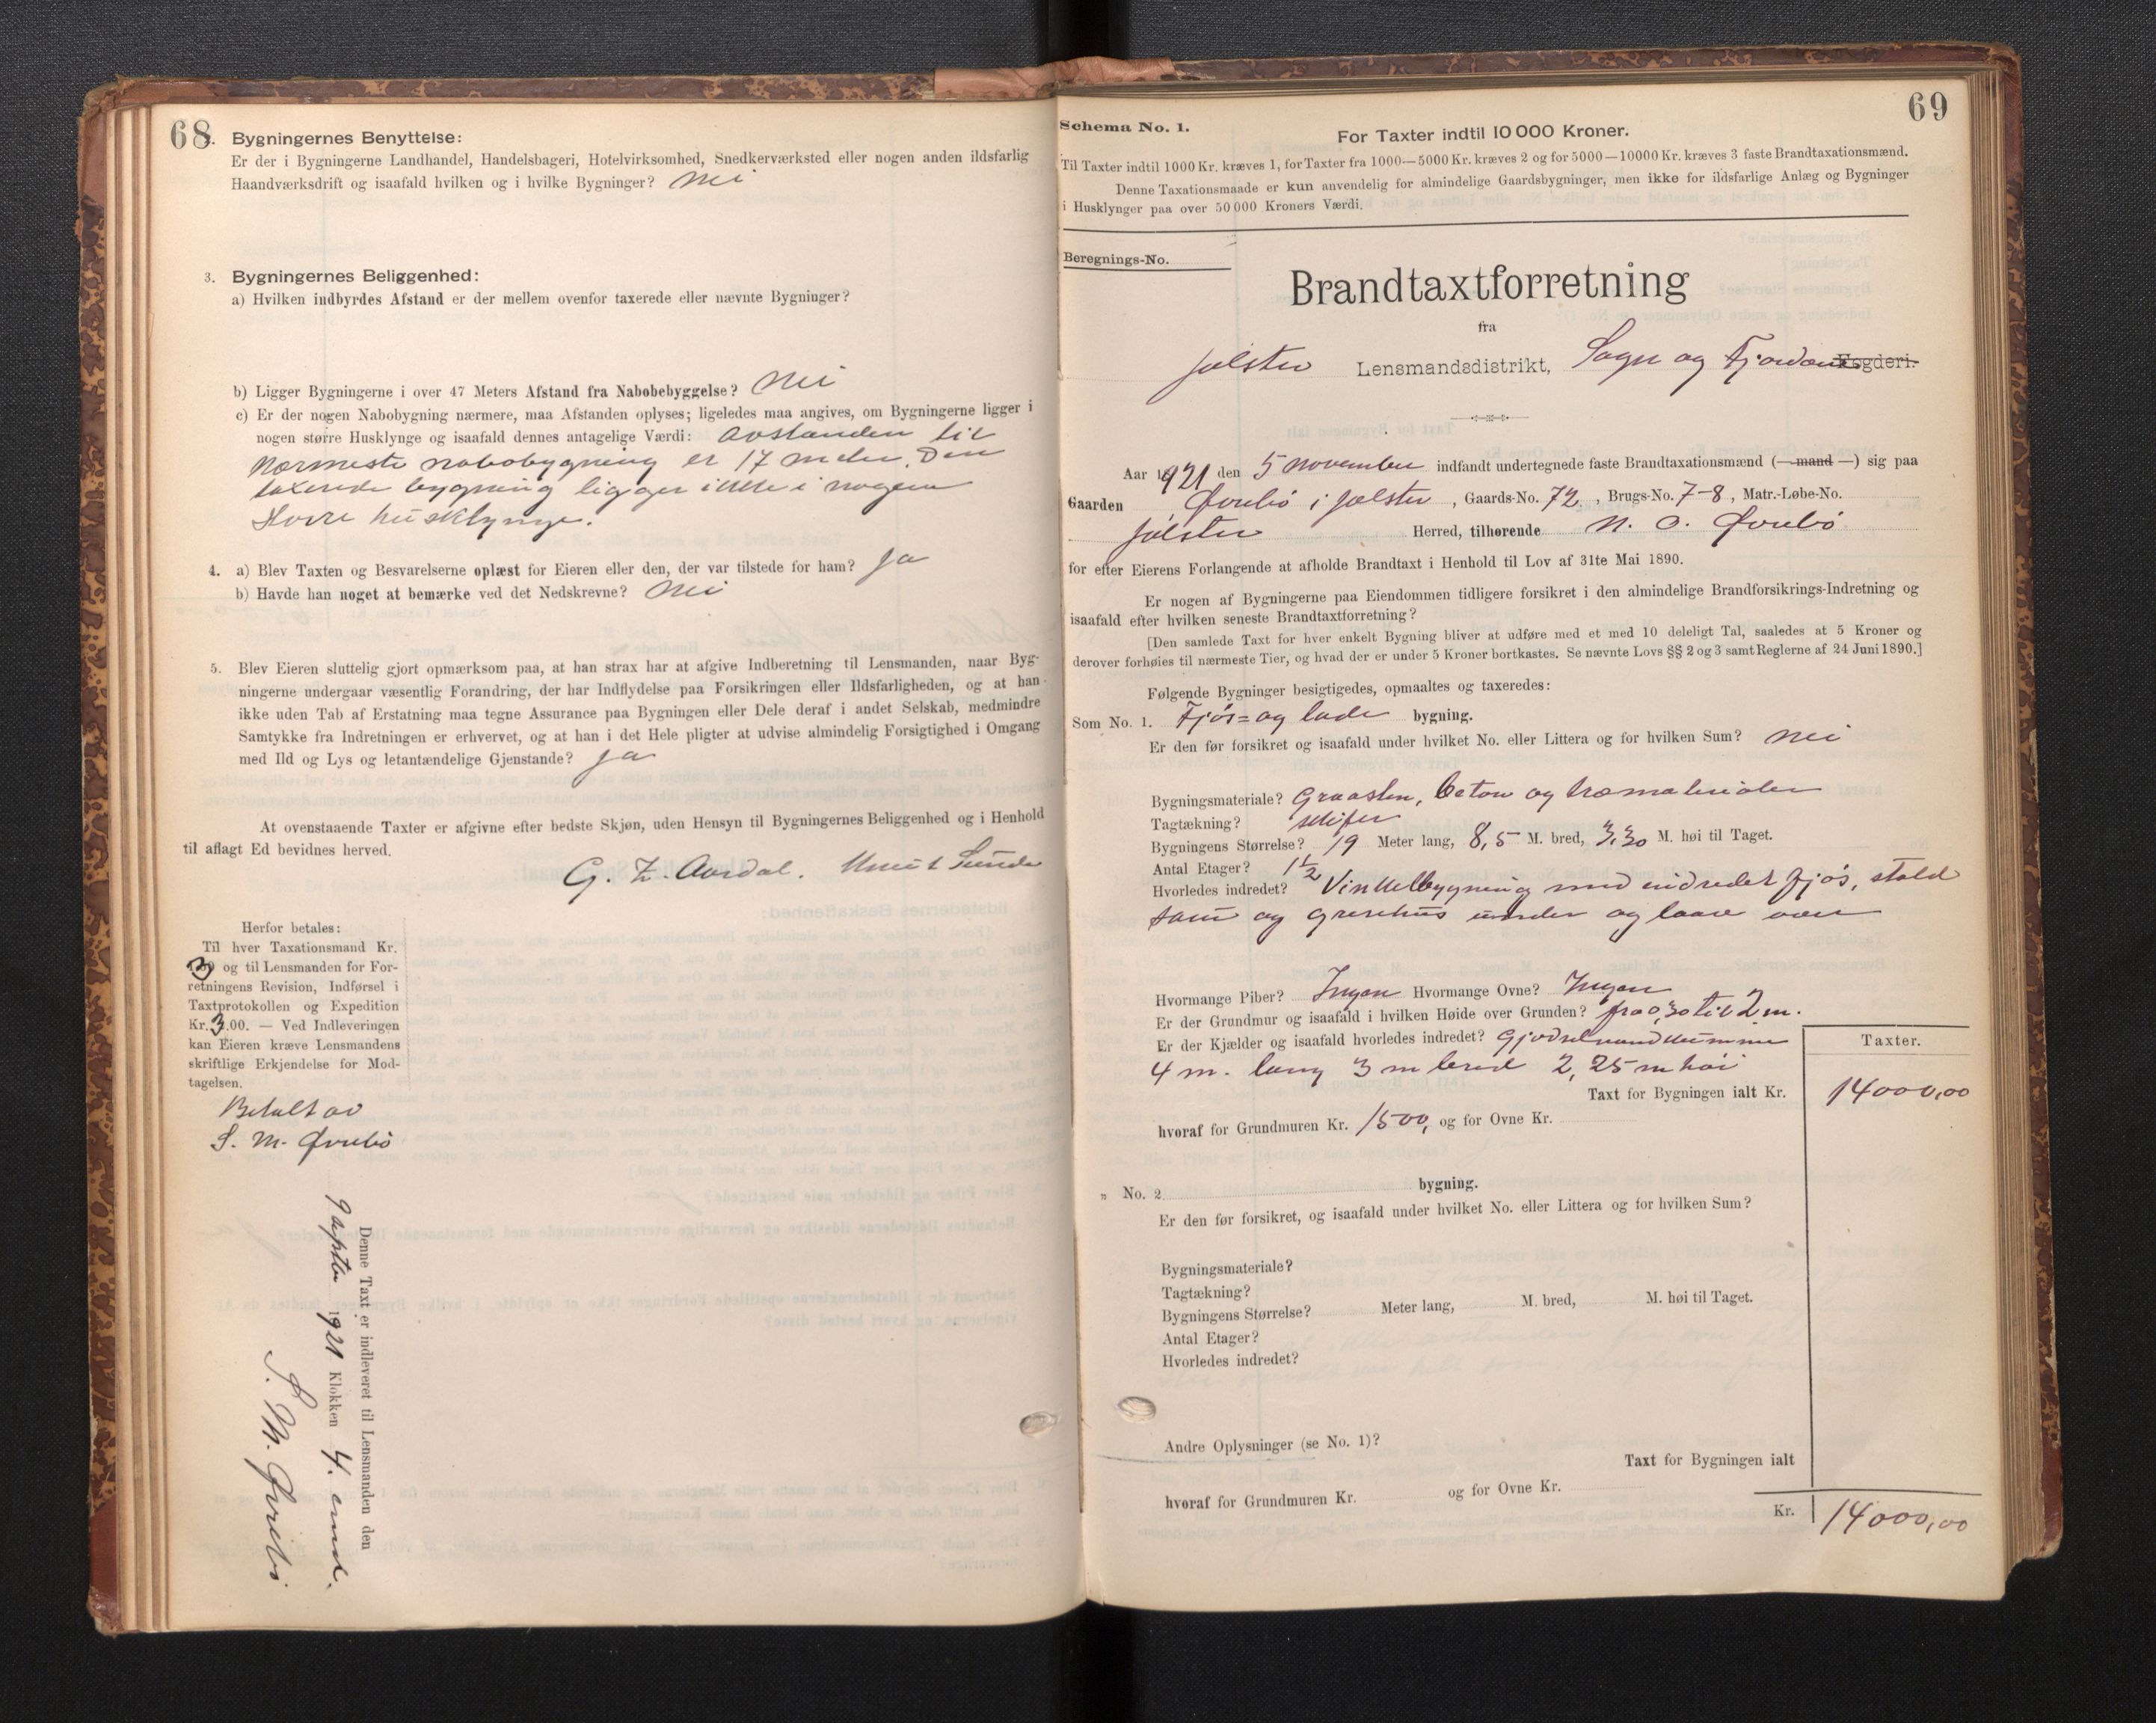 68
2. Bygningernes Benyttelse:
Er der i Bygningerne Landhandel, Handelsbageri, Hotelvirksomhed, Snedkerværksted eller nogen anden ildsfarlig
Haandværksdrift og isaafald hvilken og i hvilke Bygninger? Nei
3. Bygningernes Beliggenhed:
a) Hvilken indbyrdes Afstand er der mellem ovenfor taxerede eller nævnte Bygninger?
b) Ligger Bygningerne i over 47 Meters Afstand fra Nabobebyggelse? Nei
c) Er der nogen Nabobygning nærmere, maa Afstanden oplyses; ligeledes maa angives, om Bygningerne ligger i
nogen større Husklynge og isaafald dennes antagelige Værdi: Avstanden til
nærmeste nabobygning er 17 meter. Den
taxerede bygning ligger ikke i nogen
større husklynge.
4. a) Blev Taxten og Besvarelserne oplæst for Eieren eller den, der var tilstede for ham? Ja
b) Havde han noget at bemærke ved det Nedskrevne? Nei
5. Blev Eieren sluttelig gjort opmærksom paa, at han strax har at afgive Indberetning til Lensmanden, naar Byg-
ningerne undergaar væsentlig Forandring, der har Indflydelse paa Forsikringen eller Ildsfarligheden, og at han
ikke uden Tab af Erstatning maa tegne Assurance paa Bygningen eller Dele deraf i andet Selskab, medmindre
Samtykke fra Indretningen er erhvervet, og at han i det Hele pligter at udvise almindelig Forsigtighed i Omgang
med Ild og Lys og letantændelige Gjenstande? Ja
At ovenstaaende Taxter er afgivne efter bedste Skjøn, uden Hensyn til Bygningernes Beliggenhed og i Henhold
til aflagt Ed bevidnes herved.
G. Z. Aardal. Knut Sunde
Herfor betales:
Til hver Taxationsmand Kr.
3 og til Lensmanden for For-
retningens Revision, Indførsel i
Taxtprotokollen og Expedition
Kr. 3.00. — Ved Indleveringen
kan Eieren kræve Lensmandens
skriftlige Erkjendelse for Mod-
tagelsen.
Betalt av
S. M. Øvrebø
Denne Taxt er indleveret til Lensmanden den
9 1921 Klokken 4. emd.
S. M. Øvrebø.
69
Schema No. 1.
For Taxter indtil 10 000 Kroner.
Til Taxter indtil 1000 Kr. kræves 1, for Taxter fra 1000—5000 Kr. kræves 2 og for 5000—10000 Kr. kræves 3 faste Brandtaxationsmænd.
Denne Taxationsmaade er kun anvendelig for almindelige Gaardsbygninger, men ikke for ildsfarlige Anlæg og Bygninger
i Husklynger paa over 50 000 Kroners Værdi.
Beregnings-No.
Brandtaxtforretning
fra
Jølster Lensmandsdistrikt, Sogn og Fjordane Fogderi.
Aar 1921 den 5 november indfandt undertegnede faste Brandtaxationsmænd (— mand —) sig paa
Gaarden Øvrebø i Jølster, Gaards-No. 72, Brugs-No. 7-8, Matr.-Løbe-No.
Jølster Herred, tilhørende N. O. Øvrebø
for efter Eierens Forlangende at afholde Brandtaxt i Henhold til Lov af 31te Mai 1890.
Er nogen af Bygningerne paa Eiendommen tidligere forsikret i den almindelige Brandforsikrings-Indretning og
isaafald efter hvilken seneste Brandtaxtforretning?
[Den samlede Taxt for hver enkelt Bygning bliver at udføre med et med 10 deleligt Tal, saaledes at 5 Kroner og
derover forhøies til nærmeste Tier, og hvad der er under 5 Kroner bortkastes. Se nævnte Lovs §§ 2 og 3 samt Reglerne af 24 Juni 1890.]
Følgende Bygninger besigtigedes, opmaaltes og taxeredes:
Som No. 1. Fjøs= og lade bygning.
Er den før forsikret og isaafald under hvilket No. eller Littera og for hvilken Sum? Nei
Bygningsmateriale? Graasten, beton og træmaterialer
Tagtækning? skifer
Bygningens Størrelse? 19 Meter lang, 8,5 M. bred, 3,30 M. høi til Taget.
Antal Etager? 1 1/2
Hvorledes indredet? Vinkelbygning med indredet fjøs, stald
sam og grisehus under og laave over
Hvormange Piber? Ingen Hvormange Ovne? Ingen
Er der Grundmur og isaafald i hvilken Høide over Grunden? fra 0,30 til 2 m.
Er der Kjælder og isaafald hvorledes indredet? Gjødselvandkumme
4 m. lang 3 m bred 2,25 m høi
Taxter.
Taxt for Bygningen ialt Kr. 14000,00
hvoraf for Grundmuren Kr. 1500, og for Ovne Kr.
„ No. 2 bygning.
Er den før forsikret, og isaafald under hvilket No. eller Littera og for hvilken Sum?
Bygningsmateriale?
Tagtækning?
Bygningens Størrelse? Meter lang, M. bred, M. høi til Taget.
Antal Etager?
Hvorledes indredet?
Andre Oplysninger (se No. 1)?
Taxt for Bygningen ialt
hvoraf for Grundmuren Kr. og for Ovne Kr.
Kr. 14000,00